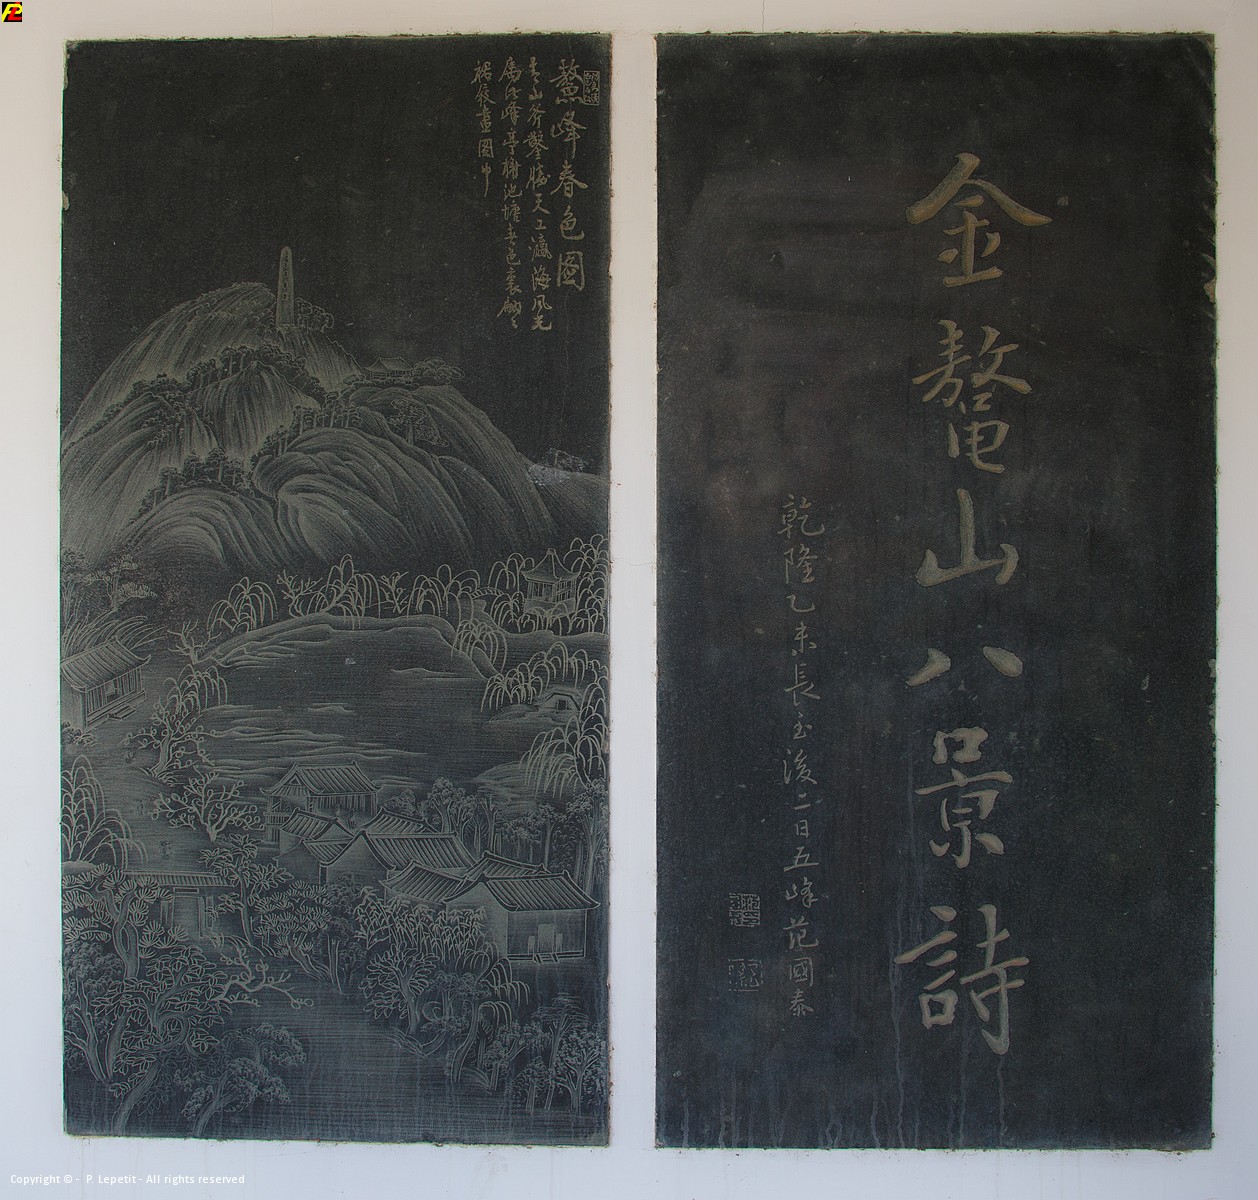 金鼇山八景詩
乾隆乙未長至後二日五峰范國泰
鰲峰春色圖
青山斧鑿勝天工瀛海風光
屬此峰亭榭池塘春色裏
裙屐畫圖中
Copyright © - P. Lepetit - All rights reserved